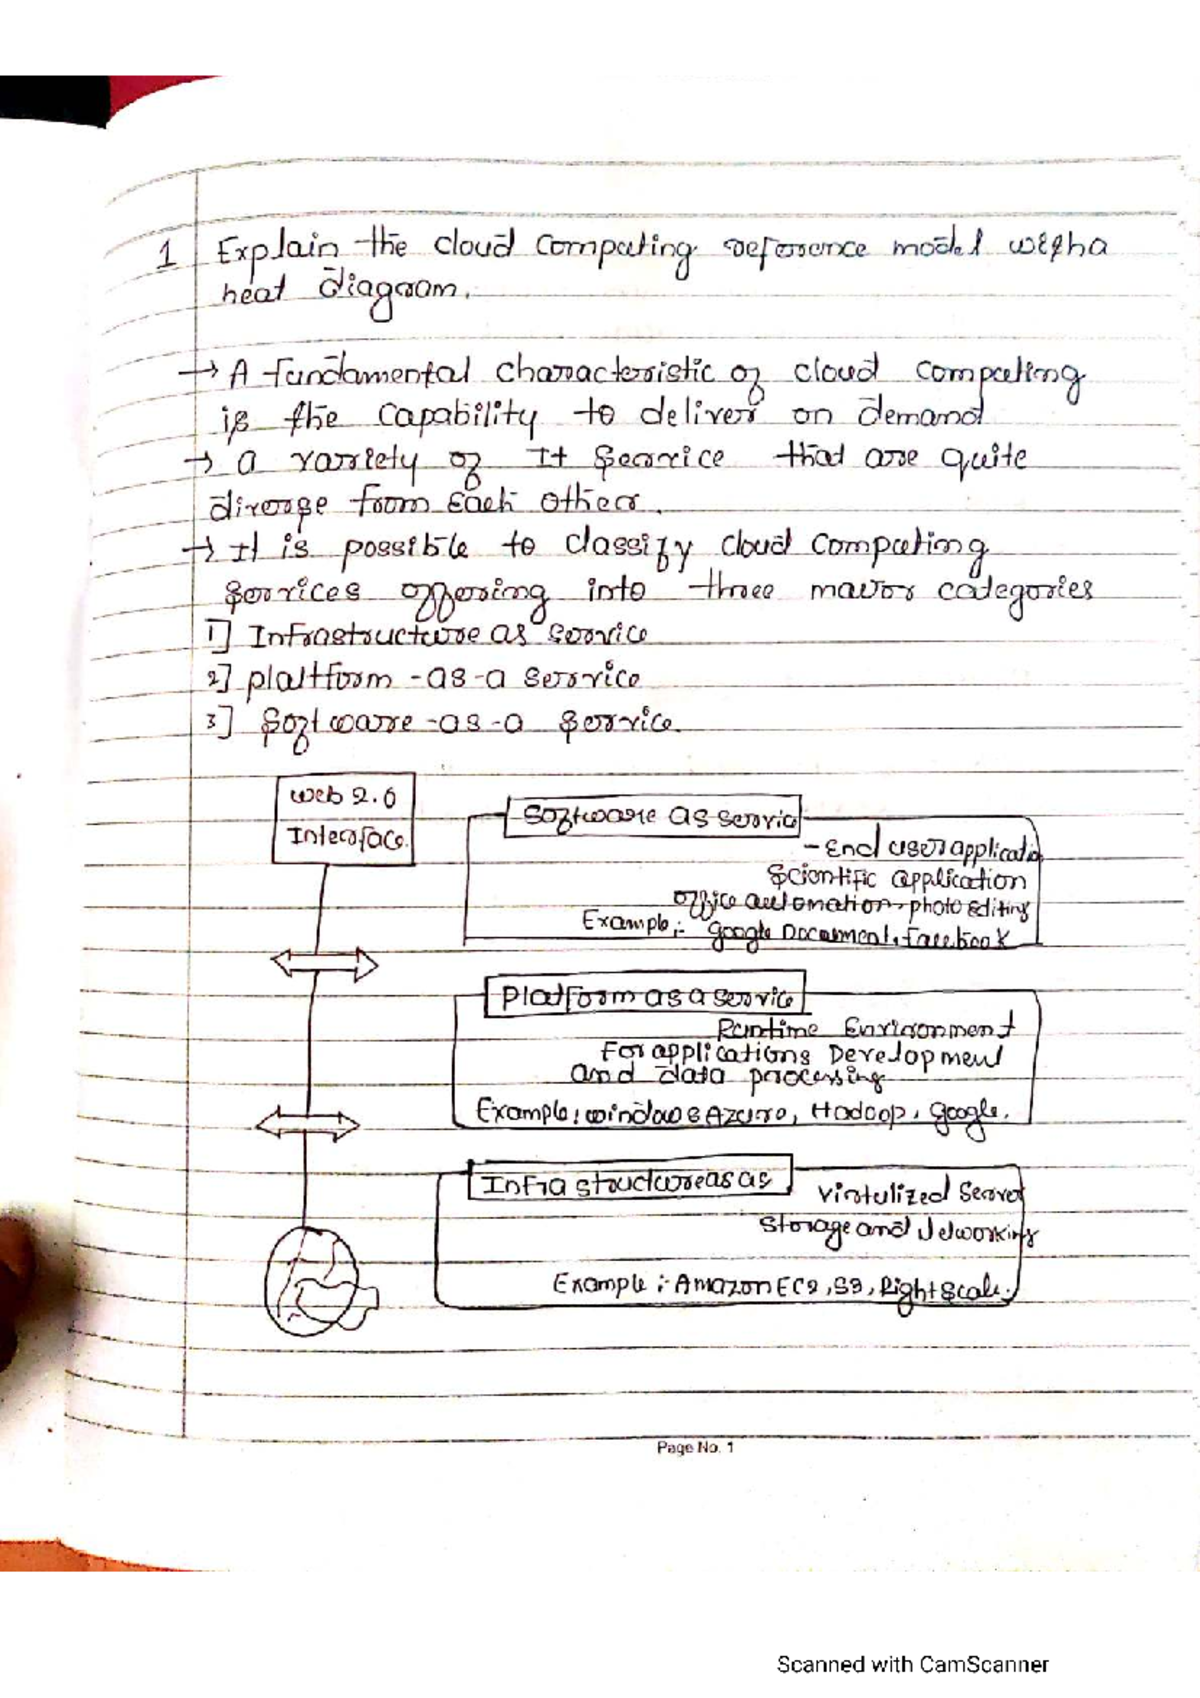 1 Explain the cloud computing reference model with a
neat diagram.
→ A fundamental characteristic of cloud computing
is the capability to deliver on demand
→ a variety of It service that are quite
diverse from each other.
→ It is possible to classify cloud computing
services offering into three major categories
1] Infrastructure as service
2] platform -as-a service
3] Software -as-a service.
web 2.0
Interface
Software as service
- End user application
Scientific application
office automation, photo editing
Example :- google Document, facebook
Platform as a service
Runtime Environment
For applications Development
and data processing
Example: windows Azure, Hadoop, google.
Infrastructure as as
virtulized server
storage and Networking
Example :- Amazon EC2, S3, Right Scale.
Page No. 1
Scanned with CamScanner